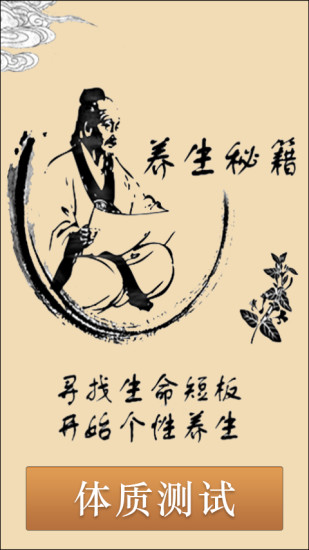 养生秘籍
寻找生命短板
开始个性养生
体质测试